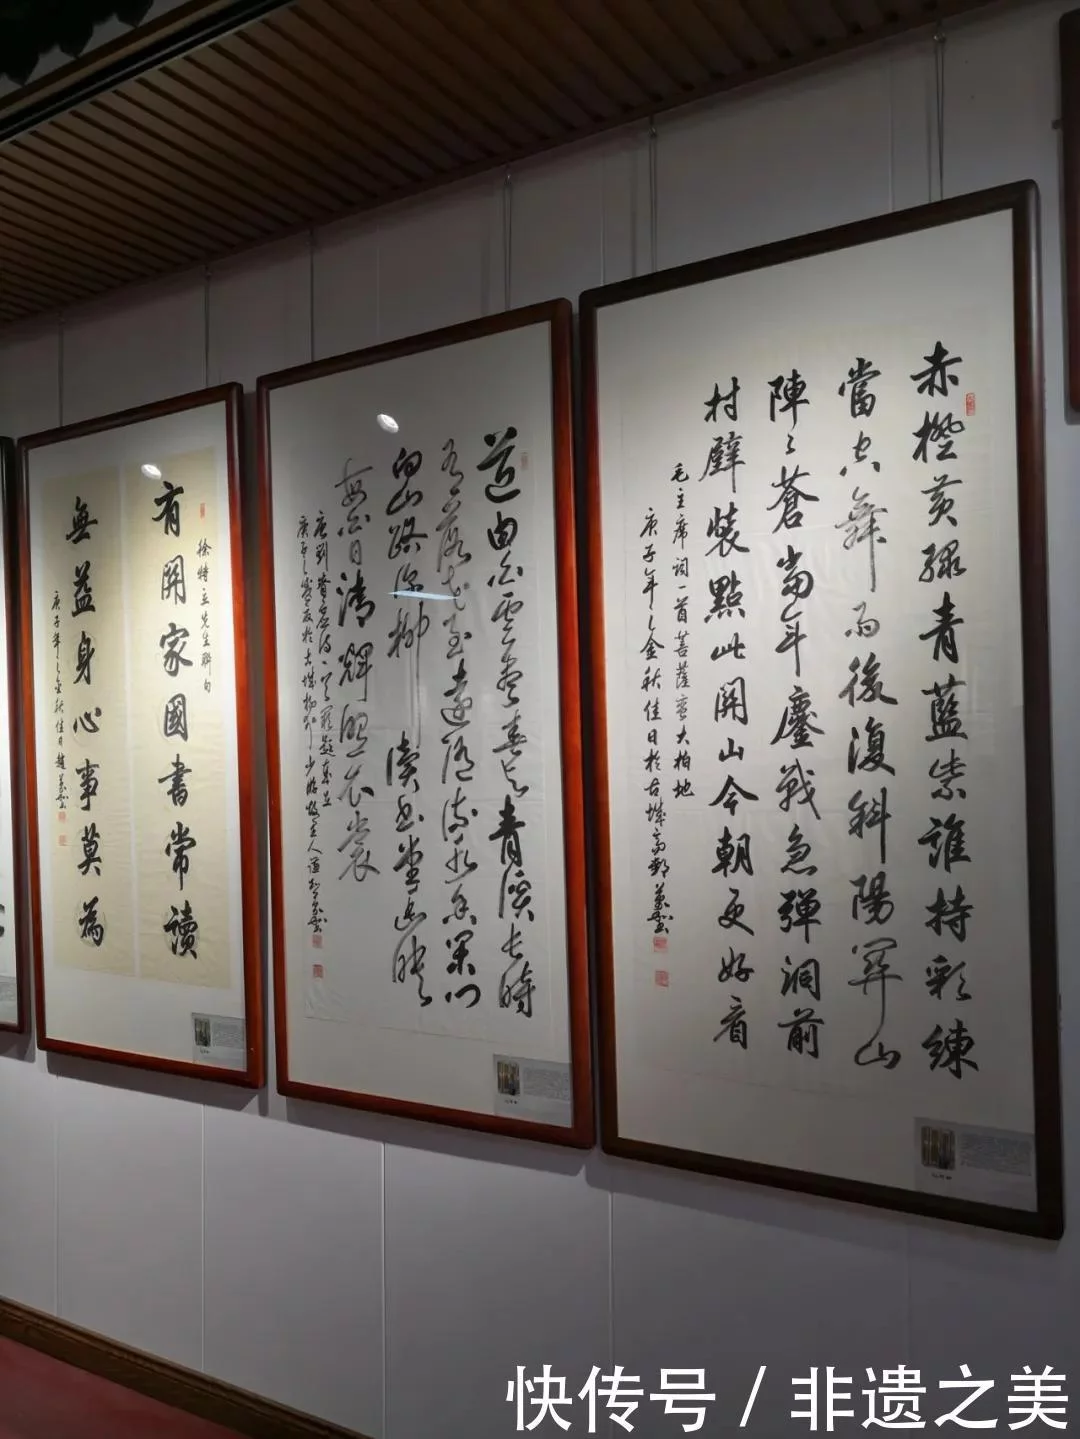 赤橙黄綠青藍紫誰持彩練
當空舞雨後復斜陽關山
陣〻蒼當年鏖戰急彈洞前
村壁裝點此關山今朝更好看
毛主席詞一首菩薩蠻大柏地
庚子年之金秋佳日於古城高郵
道由白雲盡春與青溪長時
有落花至遠隨流水香閑門
向山路深柳讀書堂幽映
每白日清輝照衣裳
唐劉眘虛詩一首
徐特立先生聯句
有關家國書常讀
無益身心事莫為
庚子年之金秋佳日趙
快传号 / 非遗之美